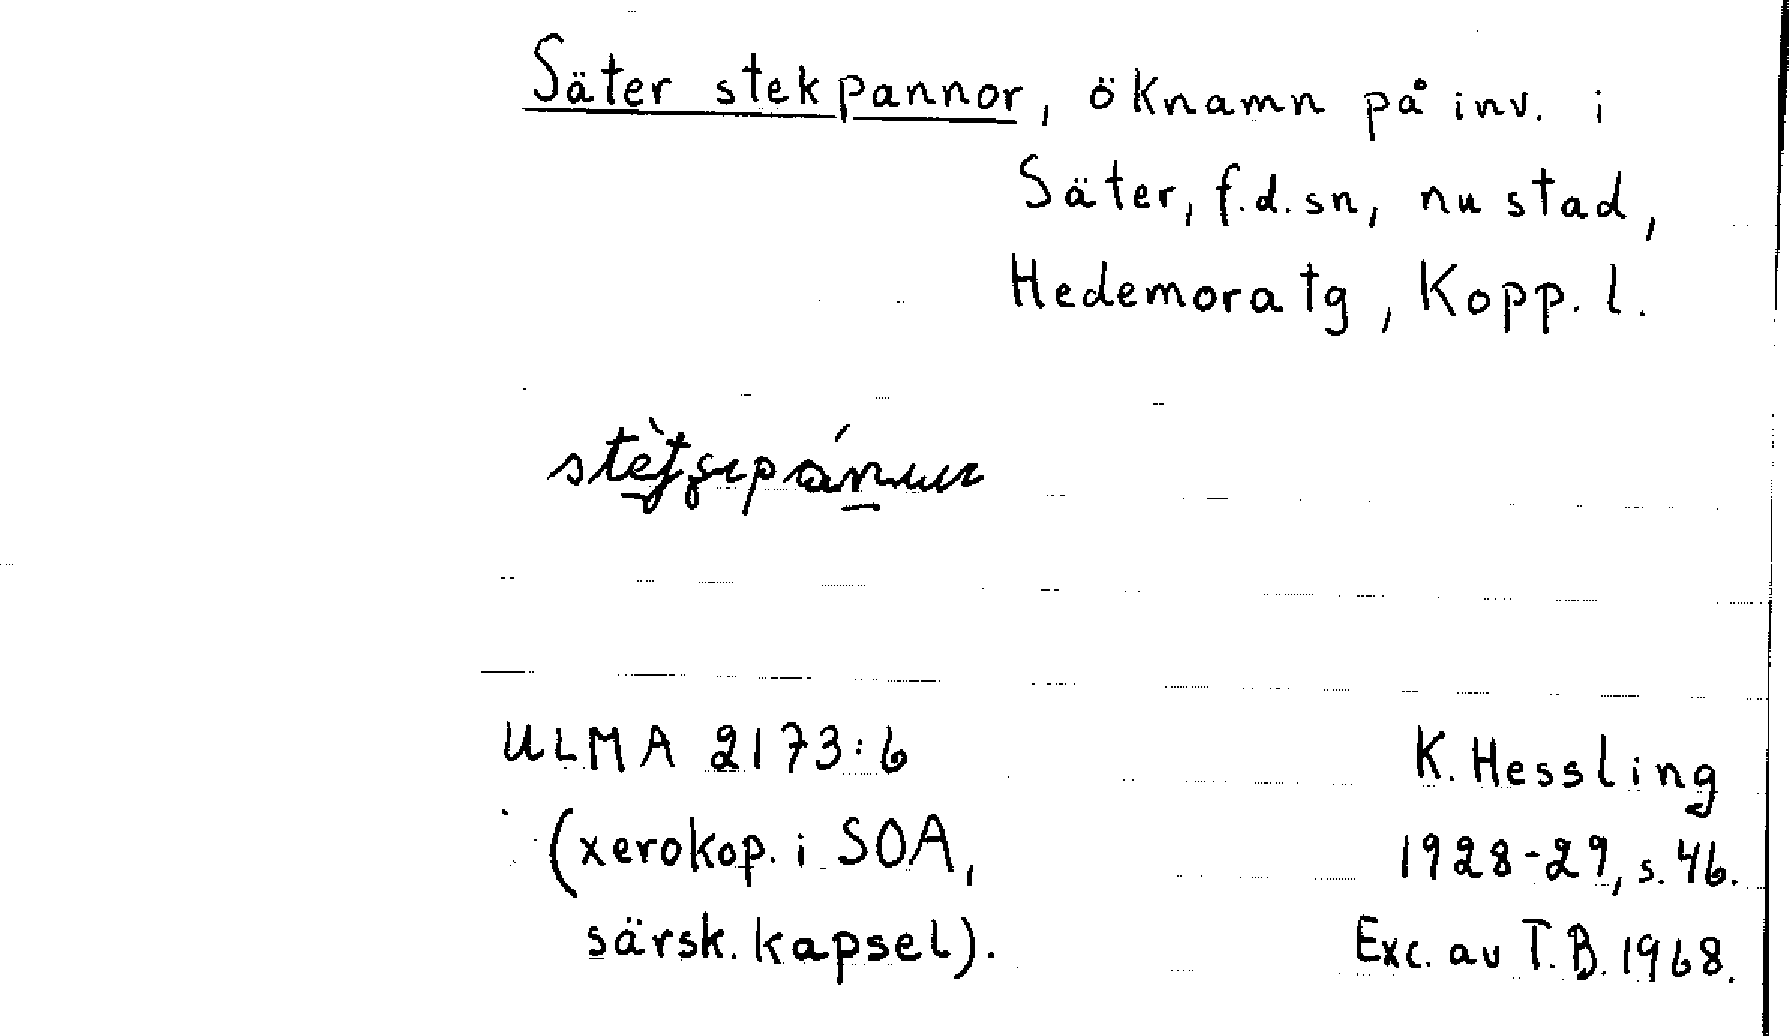 Säter stekpannor, öknamn på inv. i
Säter, f.d. sn, nu stad,
Hedemora tg, Kopp. l.
ULMA 2173:6
(xerokop. i SOA,
särsk. kapsel).
K. Hessling
1928-29, s. 46.
Exc. av T.B. 1968.